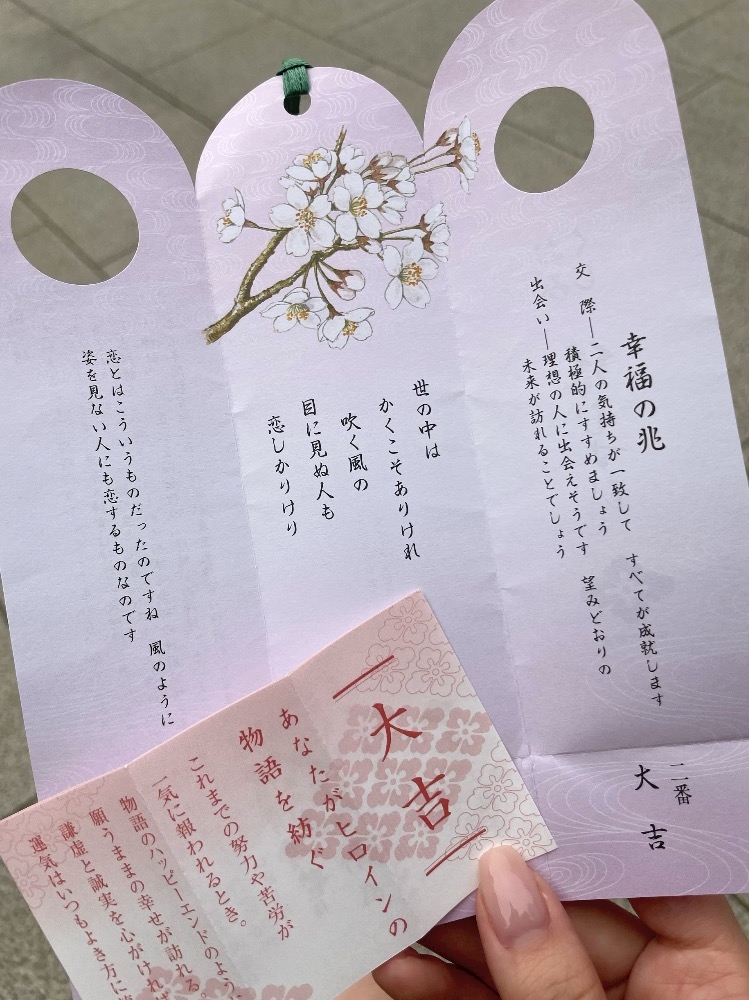 幸福の兆
交　際―二人の気持ちが一致して　すべてが成就します
積極的にすすめましょう
出会い―理想の人に出会えそうです　望みどおりの
未来が訪れることでしょう
二番
大　吉
世の中は
かくこそありけれ
吹く風の
目に見ぬ人も
恋しかりけり
恋とはこういうものだったのですね　風のように
姿を見ない人にも恋するものなのです
大吉
あなたがヒロインの
物語を紡ぐ
これまでの努力や苦労が
一気に報われるとき。
物語のハッピーエンドのよう
願うままの幸せが訪れる。
謙虚と誠実を心がけれ
運気はいつもよき方に